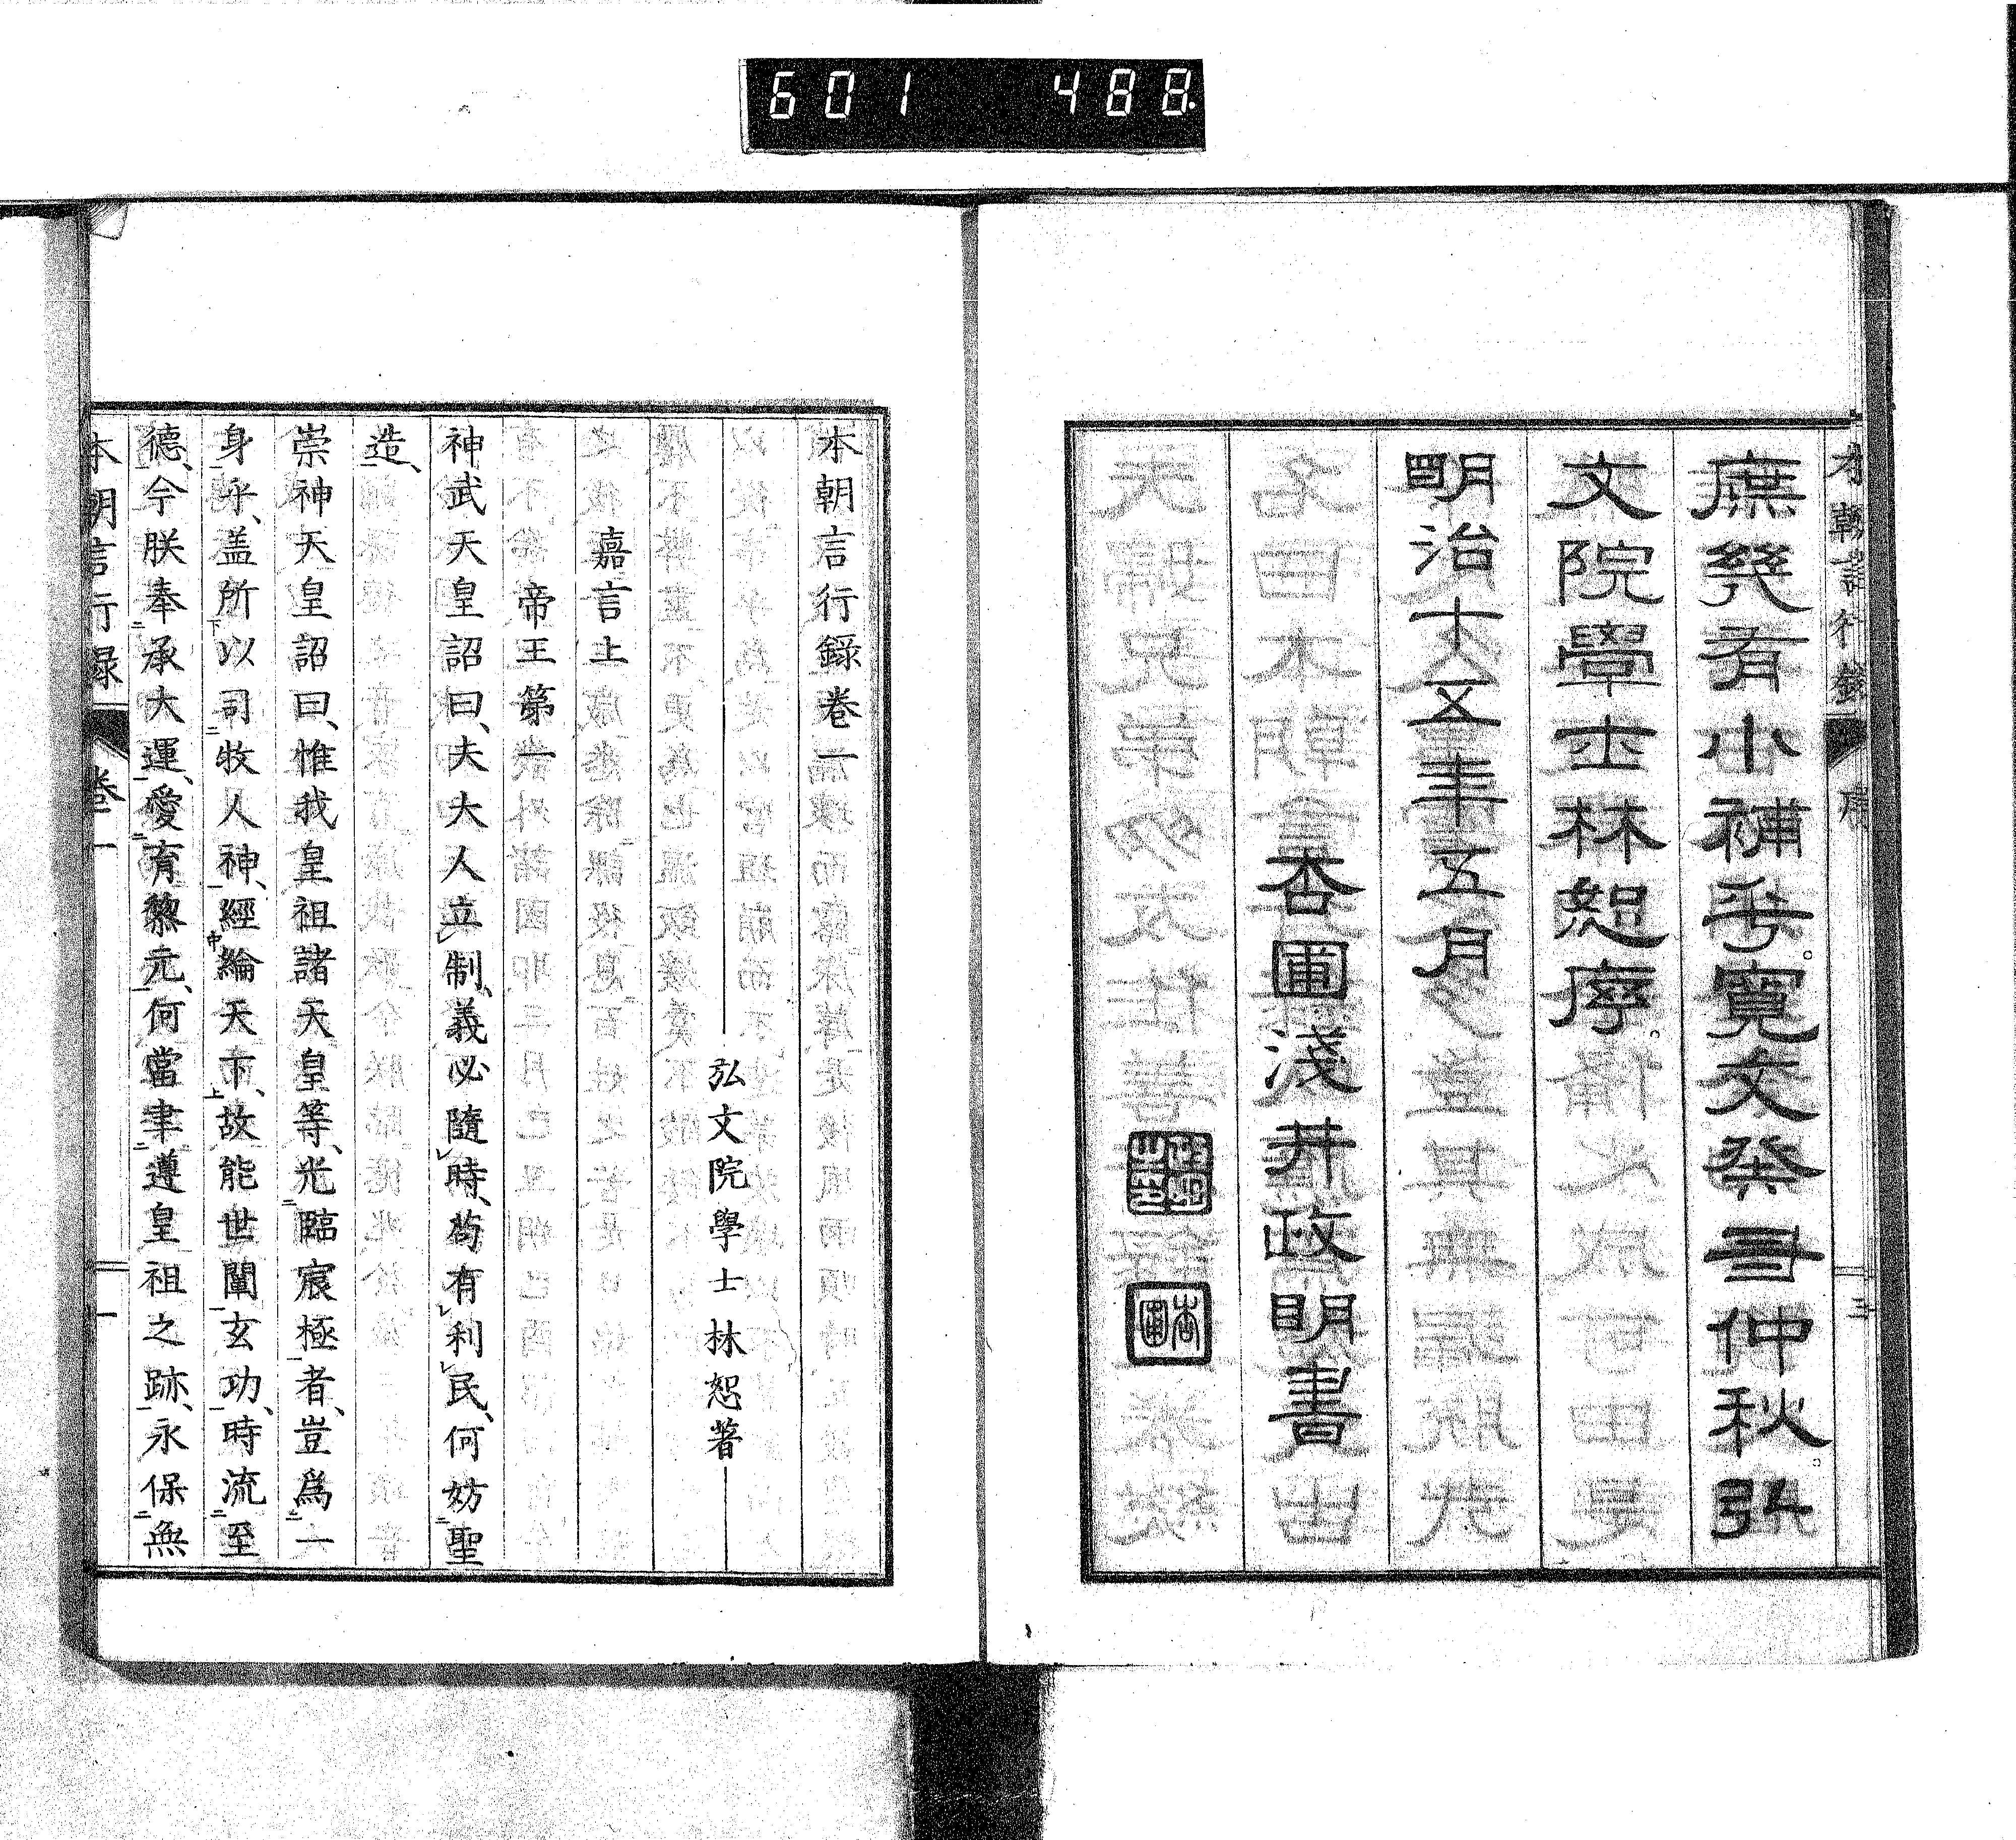 601 488.
本朝言行錄 序 三
庶幾有小補乎。寬文癸丑仲秋。弘
文院學士林恕序。
明治十五年五月
杏圃淺井政明書
杏圃
本朝言行錄卷一
弘文院學士林恕著
嘉言上
帝王第一
神武天皇詔曰、夫大人立制、義必隨時、苟有利民、何妨聖
造、
崇神天皇詔曰、惟我皇祖諸天皇等、光臨宸極者、豈爲一
身乎、盖所以司牧人神、經綸天下、故能世闡玄功、時流至
德、今朕奉承大運、愛育黎元、何當聿遵皇祖之跡、永保無
本朝言行録 卷一 一